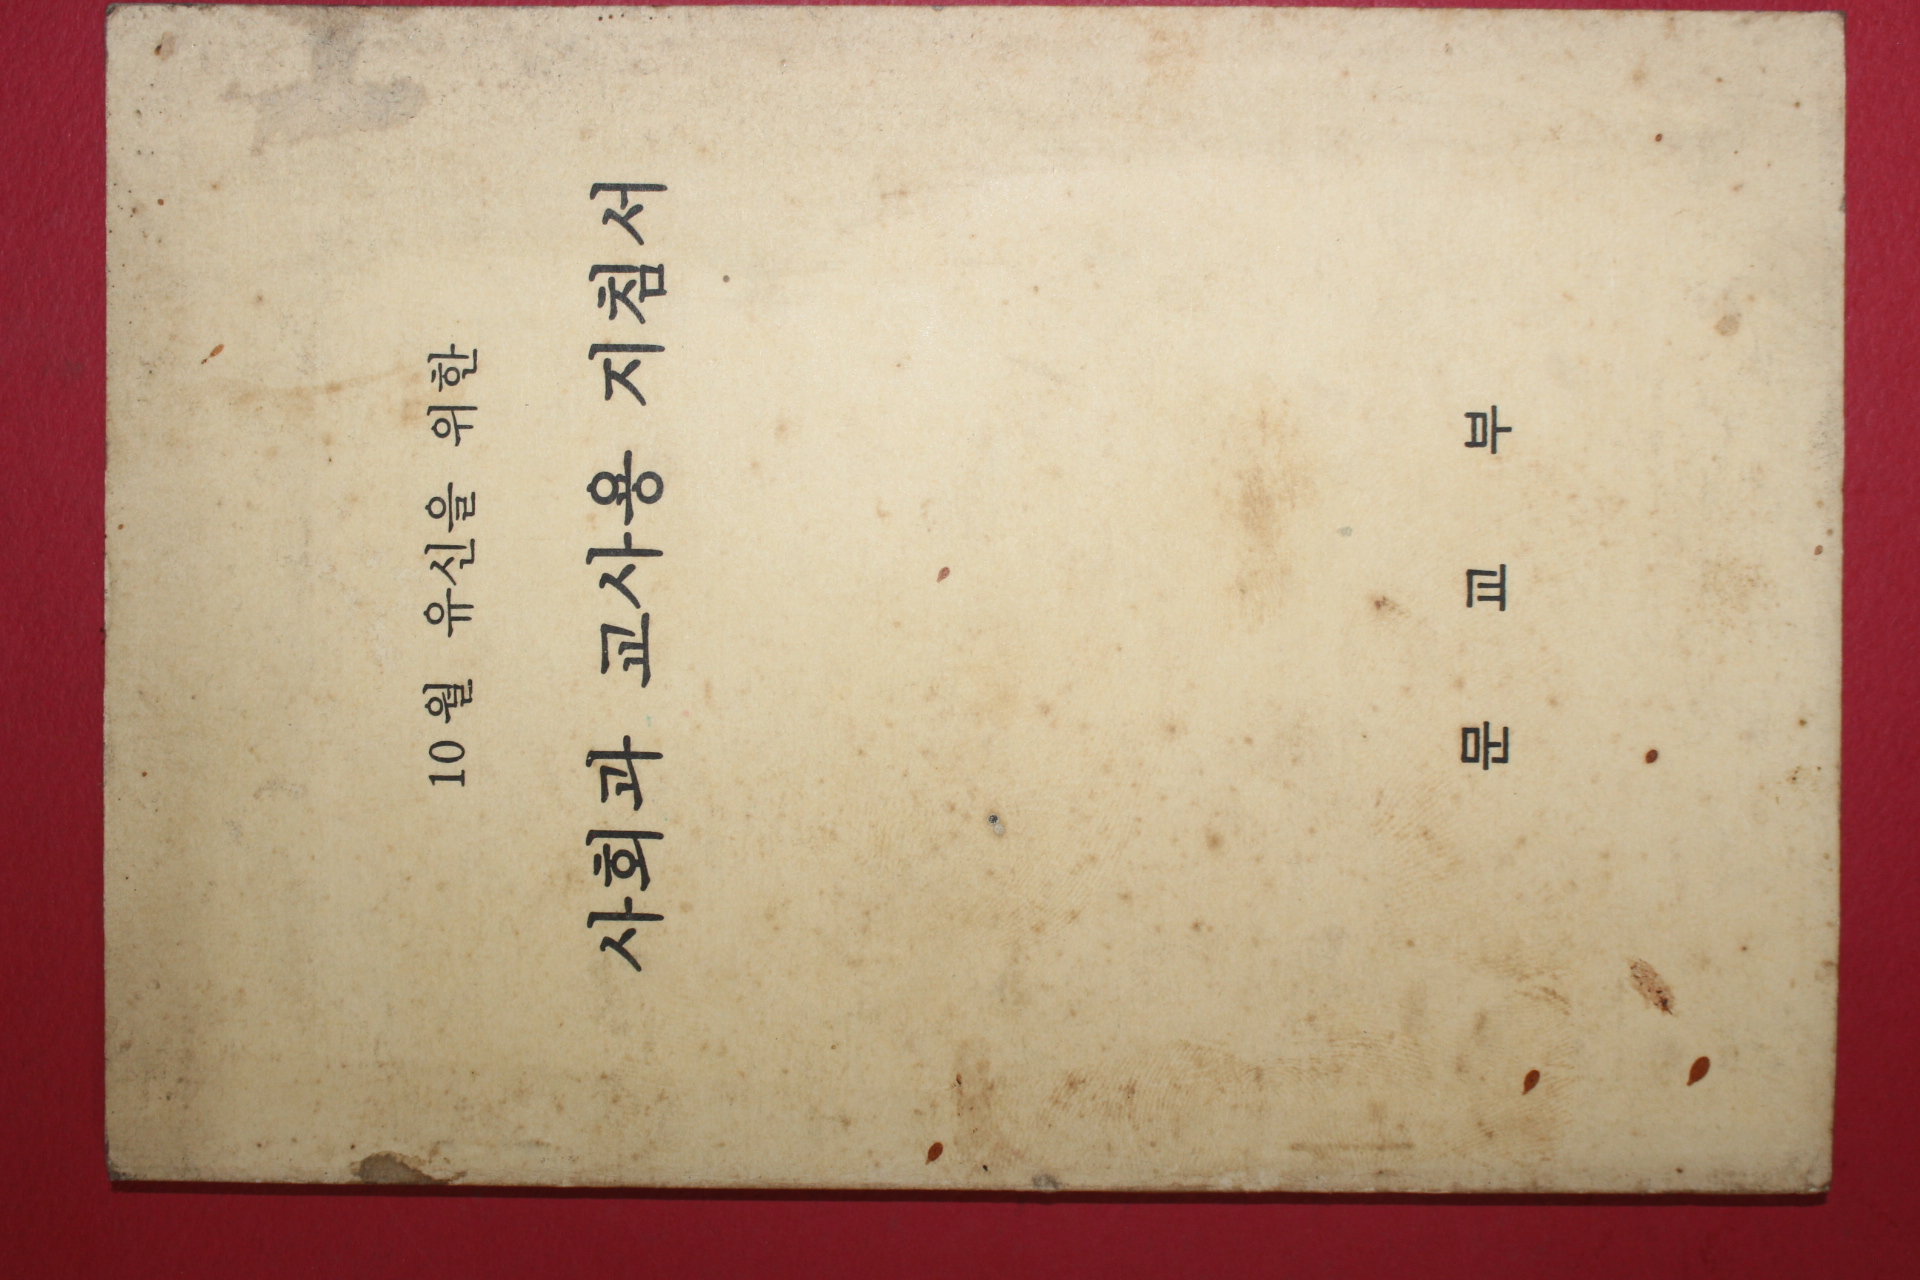 10월 유신을 위한
사회과 교사용 지침서
문교부